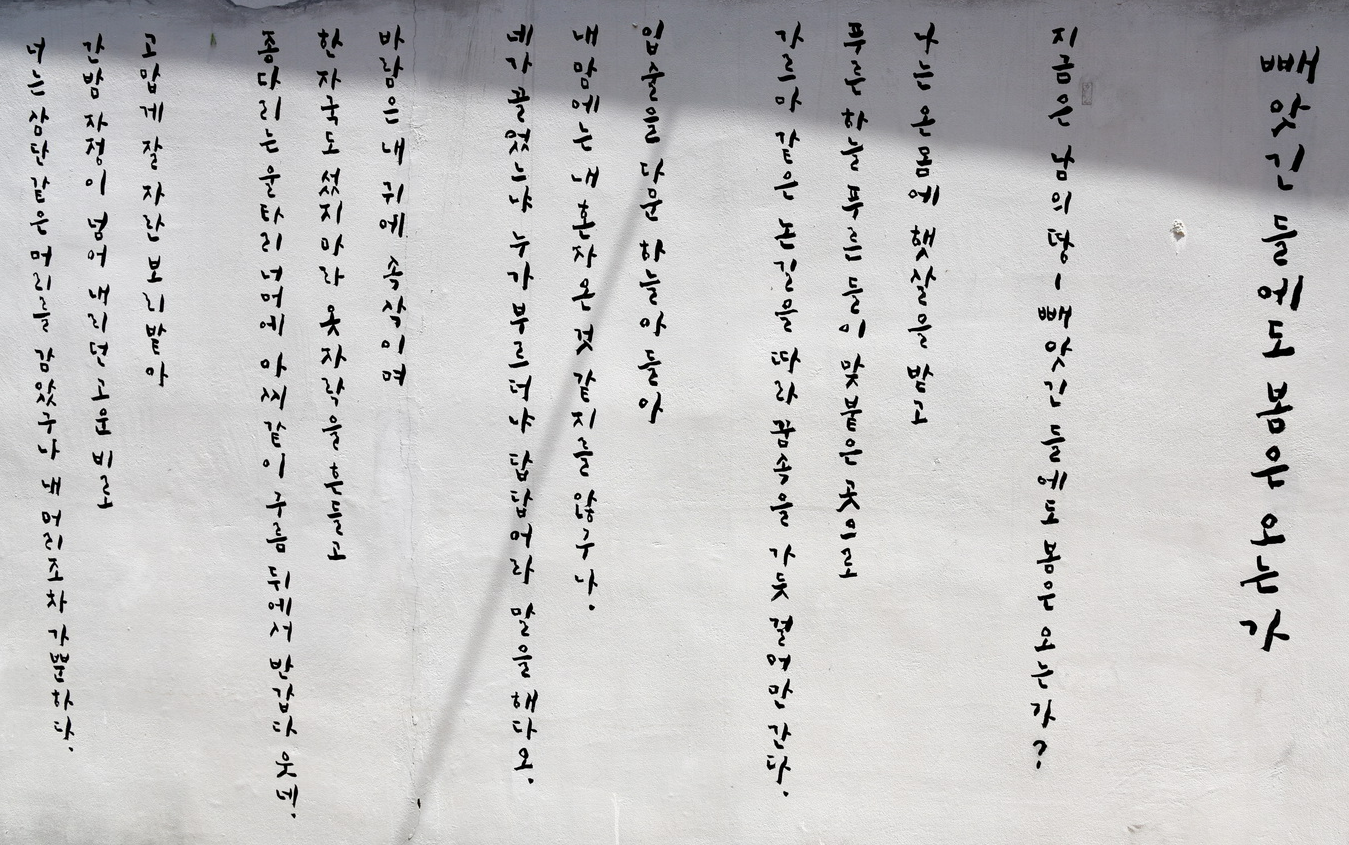 빼앗긴 들에도 봄은 오는가
지금은 남의 땅ㅡ빼앗긴 들에도 봄은 오는가?
나는 온몸에 햇살을 받고
푸른 하늘 푸른 들이 맞붙은 곳으로
가르마 같은 논길을 따라 꿈속을 가듯 걸어만 간다.
입술을 다문 하늘아 들아
내 맘에는 내 혼자 온 것 같지를 않구나.
네가 끌었느냐 누가 부르더냐 답답어라 말을 해다오.
바람은 내 귀에 속삭이며
한 자국도 섰지마라 옷자락을 흔들고
종다리는 울타리 너머에 아씨 같이 구름 뒤에서 반갑다 웃네.
고맙게 잘 자란 보리밭아
간밤 자정이 넘어 내리던 고운 비로
너는 삼단같은 머리를 감았구나 내 머리조차 가뿐하다.